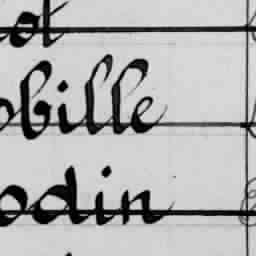 ot
obille
odin